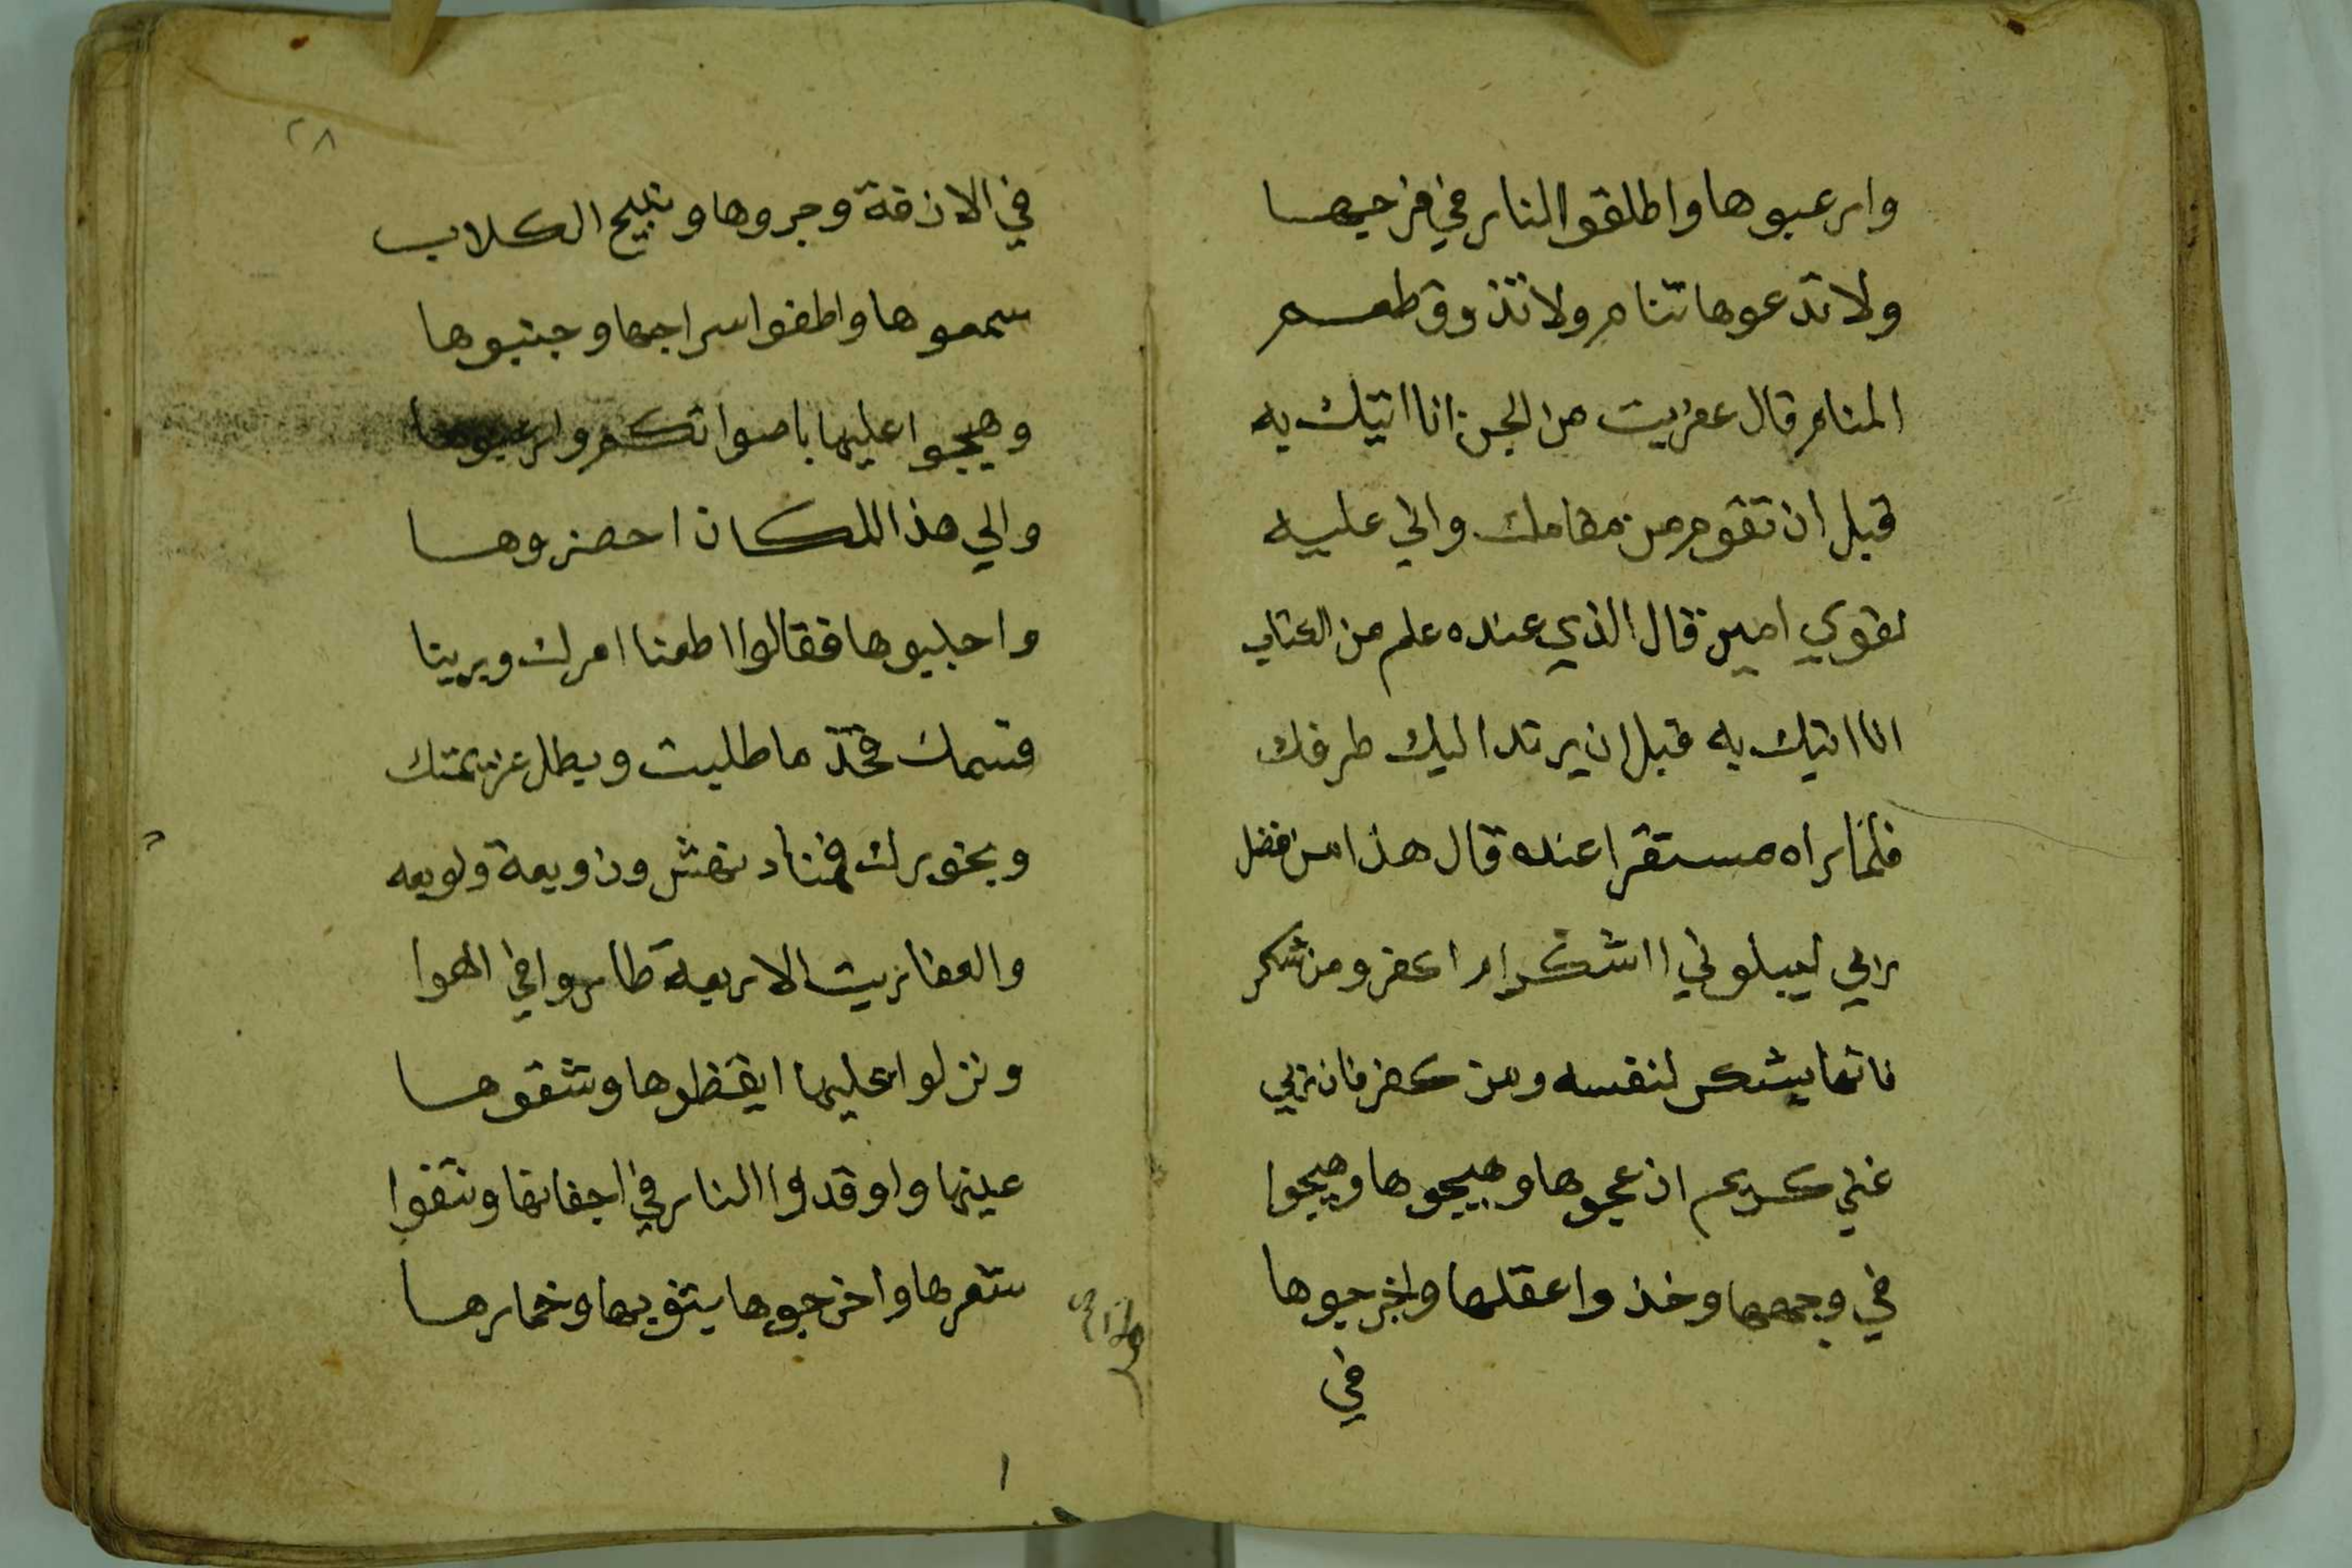 وارعبوها واطلقوا النار في فرجيها
ولا تدعوها تنام ولا تذوق طعم
المنام قال عفريت من الجن انا اتيك به
قبل ان تقوم من مقامك واني عليه
لقوي امين قال الذي عنده علم من الكتاب
انا اتيك به قبل ان يرتد اليك طرفك
فلما راه مستقرا عنده قال هذا من فضل
رابي ليبلوني ااشكر ام اكفر ومن شكر
فانما يشكر لنفسه ومن كفر فان ربي
غني كريم ازعجوها وهيجوها وهيجوا
في وجهها وخذ واعقلها واخرجوها
في
٢٨
في الازقة وجروها ونبيح الكلاب
سمعوها واطفوا سراجها وجنبوها
وهيجوا عليها باصواتكم وارعبوها
والي هذا المكان احضروها
واجلبوها فقالوا اطعنا امرك وبرينا
قسمك فخذ ما طلبت وبطل عزيمتك
وبخورك فناد نهش وزويعة ولويعه
والعفاريت الاربعة طاروا في الهوا
ونزلوا عليها ايقظوها وشقوها
عينها واوقدوا النار في اجفانها ونتفوا
شعرها واخرجوها بثوبها وخمارها